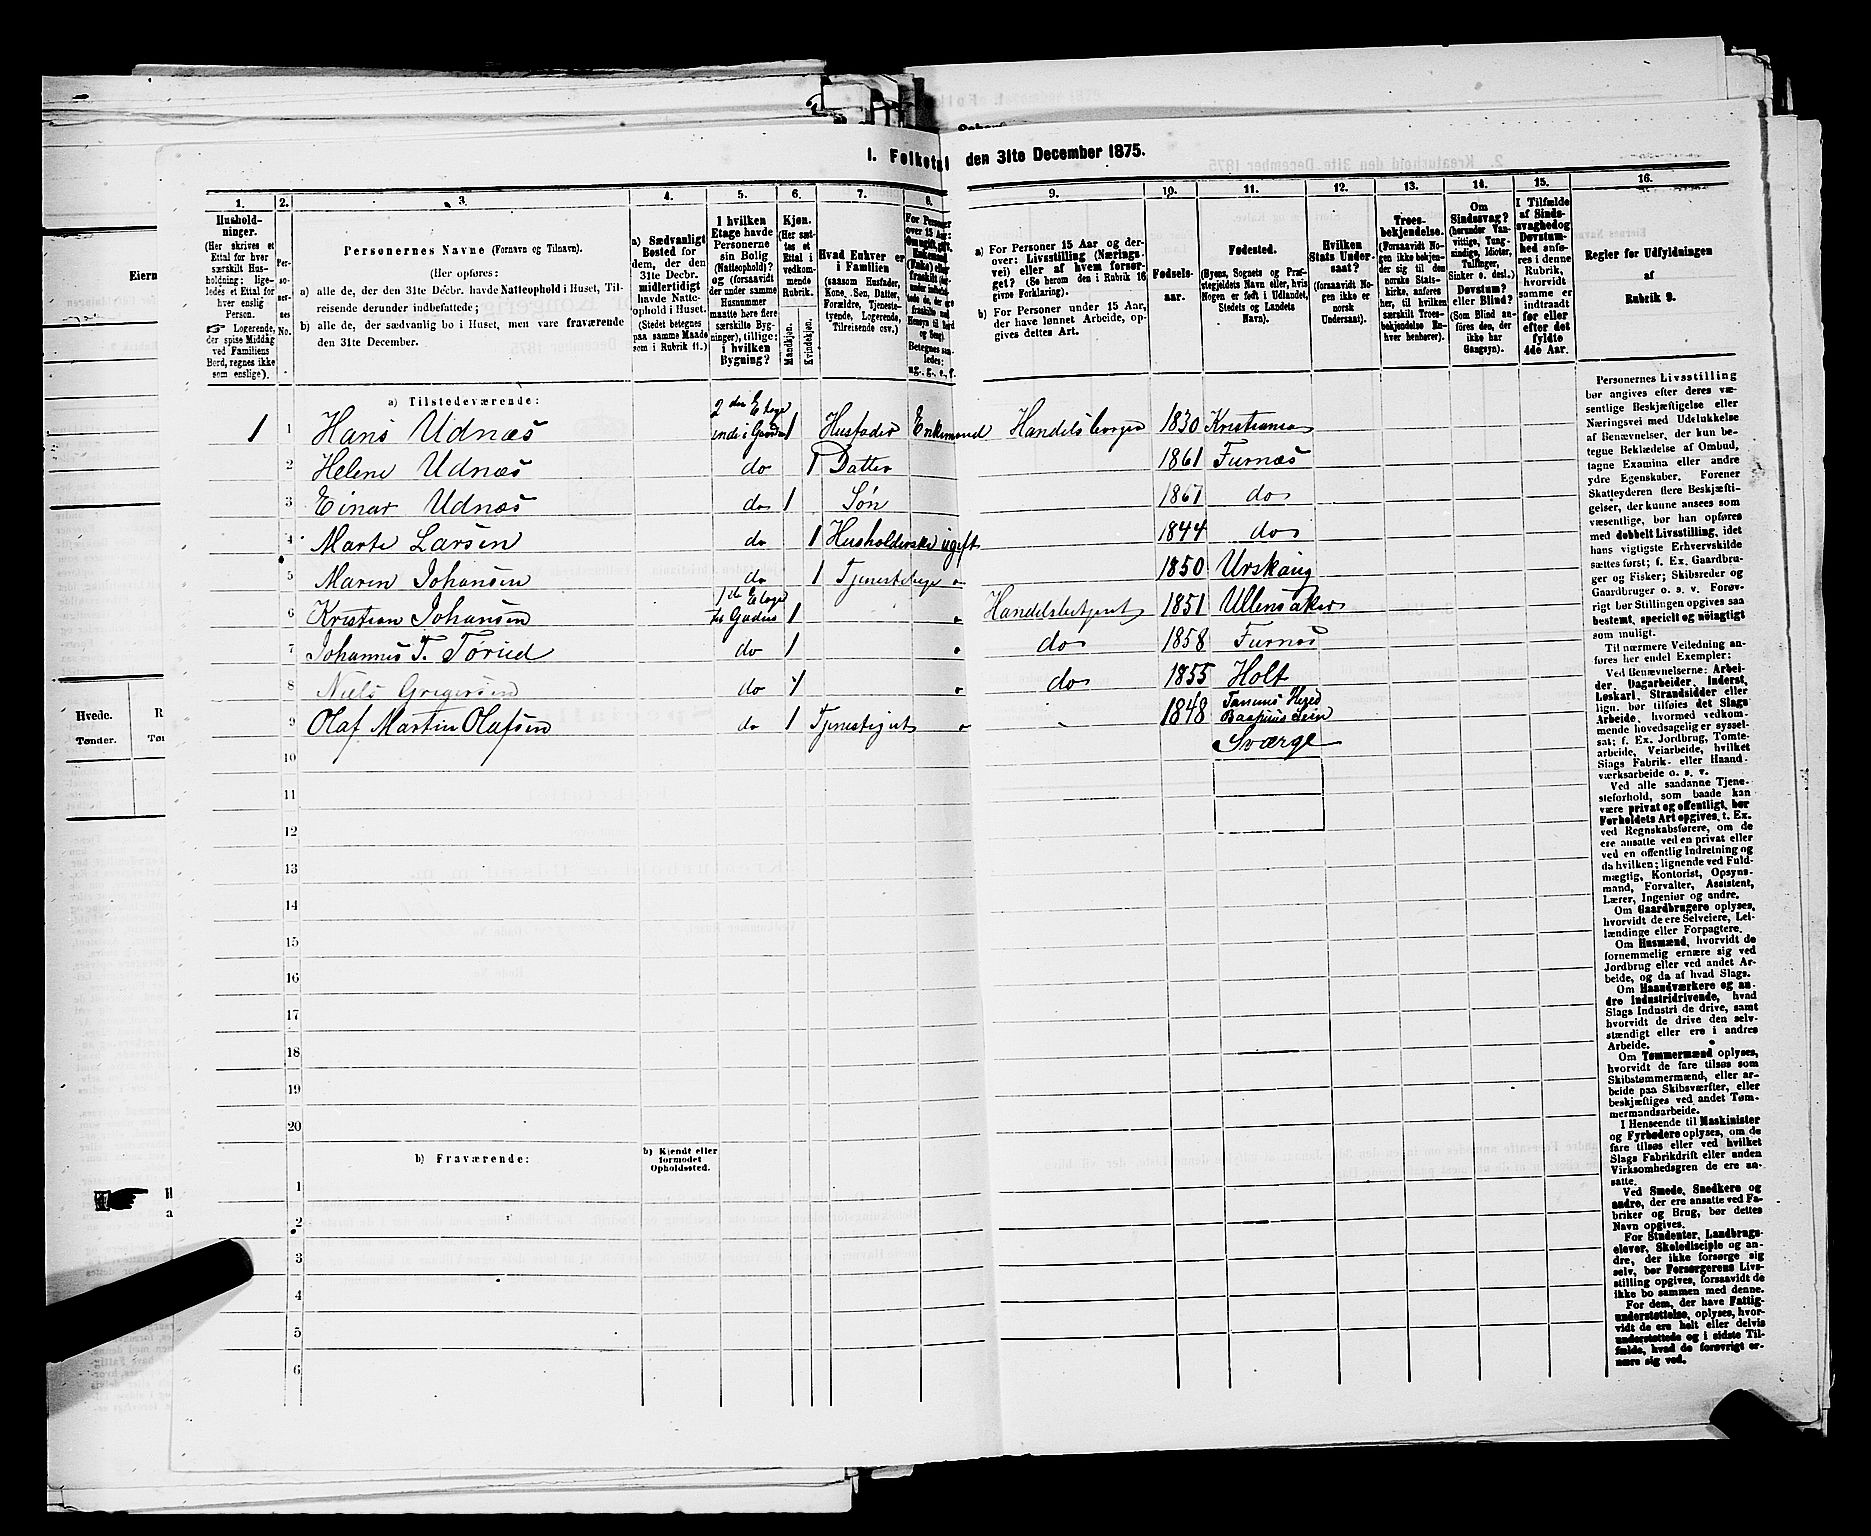 1. Folketæl
den 31te December 1875.
1.
2.
3.
4.
5.
6.
7.
8.
9.
10.
11.
12.
13.
14.
15.
16.
Hushold-
ninger.
(Her skrives et
Ettal for hver
særskilt Hus-
holdning; lige-
ledes et Ettal for
hver enslig
Person.
Logerende,
der spise Middag
ved Familiens
Bord, regnes ikke
som enslige).
Per-
so-
ner-
nes
No.
Personernes Navne (Fornavn og Tilnavn).
(Her opføres:
a) alle de, der den 31te Decbr. havde Natteophold i Huset, Til-
reisende derunder indbefattede;
b) alle de, der sædvanlig bo i Huset, men vare fraværende
den 31te December.
a) Sædvanligt
Bosted for
dem, der den
31te Decbr.
midlertidigt
havde Natte-
ophold i Huset.
(Stedet betegnes
paa samme Maade
som i Rubrik 11.)
I hvilken
Etage havde
Personerne
sin Bolig
(Natteophold)?
og (forsaavidt
der under samme
Husnummer
maatte høre flere
særskilte Byg-
ninger), tillige:
i hvilken
Bygning?
Kjøn.
(Her sæt-
tes et
Ettal i
vedkom-
mende
Rubrik.
Mandkjøn.
Kvindekjøn.
Hvad Enhver er
i Familien
(saasom Husfader,
Kone, Søn, Datter,
Forældre, Tjeneste-
tyende, Logerende,
Tilreisende osv.)
For Personer
over 15 Aar:
Om ugift, gift,
Betegnes saa-
ledes:
ug., g., e., f.
a) For Personer 15 Aar og der-
over: Livsstilling (Nærings-
vei) eller af hvem forsør-
get? (Se herom den i Rubrik 16
givne Forklaring).
b) For Personer under 15 Aar,
der have lønnet Arbeide, op-
gives dettes Art.
Fødsels-
aar.
Fødested.
(Byens, Sognets og Præ-
stegjeldets Navn eller, hvis
Nogen er født i Udlandet,
Stedets og Landets
Navn).
Hvilken
Stats Under-
saat?
(forsaavidt No-
gen ikke er
norsk
Undersaat).
Troes-
bekjendelse.
(Forsaavidt No-
gen ikke bekjen-
der sig til den
norske Stats-
kirke, anføres
her, til hvilken
særskilt Troes-
bekjendelse En-
hver henhører).
Om
Sindssvag?
(herunder Van-
vittige, Tung-
sindige, Idioter,
Tullinger,
Sinker o. desl.)
Døvstum?
eller Blind?
(Som Blind an-
føres den, der
ikke har
Gangsyn).
I Tilfælde
af Sinds-
svaghed og
Døvstum-
hed anfø-
res i denne
Rubrik,
hvorvidt
samme er
indtraadt
før eller
efter det
fyldte
4de Aar.
Regler for Udfyldningen
af
Rubrik 9.
a) Tilstedeværende:
1 1 Hans Udnæs 2den Etage 1 Husfader Enkemand Handelsborger 1830 Kristiansa
2 Helene Udnæs do 1 Datter 1861 Furnæs
3 Einar Udnæs do 1 Søn 1867 do
4 Marte Larsen do 1 Husholderske ugift 1844 do
5 Maren Johansen do 1 Tjenestepige 1850 Urskoug
1ste Etage
6 Kristian Johansen til Gaden 1 Handelsbetjent 1851 Ullensaker
7 Johannes T. Torud do 1 do 1858 Furnes
8 Niels Gregersen do 1 do 1855 Holt
9 Olaf Martin Olafsen do 1 Tjenestegut 1848 Tanums Hered
Sværge
10
11
12
13
14
15
16
17
18
19
20
b) Fraværende:
b) Kjendt eller
formodet
Opholdssted.
1
2
3
4
5
6
Personernes Livsstilling
bør angives efter deres væ-
sentlige Beskjæftigelse eller
Næringsvei med Udelukkelse
af Benævnelser, der kun be-
tegne Beklædelse af Ombud,
tagne Examina eller andre
ydre Egenskaber. Forener
Skatteyderen flere Beskjæfti-
gelser, der kunne ansees som
væsentlige, bør han opføres
med dobbelt Livsstilling, idet
hans vigtigste Erhvervskilde
sættes først; f. Ex. Gaardbru-
ger og Fisker; Skibsreder og
Gaardbruger o. s. v. Forøv-
rigt bør Stillingen opgives saa
bestemt, specielt og nøiagtigt
som muligt.
Til nærmere Veiledning an-
føres her endel Exempler:
Ved Benævnelserne: Arbei-
der, Dagarbeider, Inderst,
Løskarl, Strandsidder eller
lign. bør tilføies det Slags
Arbeide, hvormed vedkom-
mende hovedsagelig er syssel-
sat; f. Ex. Jordbrug, Tomte-
arbeide, Veiarbeide, hvilket
Slags Fabrik- eller Haand-
værksarbeide o. s. v.
Ved alle saadanne Tjene-
steforhold, som baade kan
være privat og offentligt, bør
Forholdets Art opgives, t. Ex.
ved Regnskabsførere, om de
ere ansatte ved en privat eller
ved en offentlig Indretning og
da hvilken; lignende ved Fuld-
mægtig, Kontorist, Opsyns-
mand, Forvalter, Assistent,
Lærer, Ingeniør og andre.
Om Gaardbrugere oplyses,
hvorvidt de ere Selveiere, Lei-
lændinge eller Forpagtere.
Om Husmænd, hvorvidt de
fornemmelig ernære sig ved
Jordbrug eller ved andet Ar-
beide, og da af hvad Slags.
Om Haandværkere og an-
dre Industridrivende, hvad
Slags Industri de drive, samt
hvorvidt de drive den selv-
stændigt eller ere i andres
Arbeide.
Om Tømmermænd oplyses,
hvorvidt de fare tilsøs som
Skibstømmermænd, eller ar-
beide paa Skibsværfter, eller
beskjæftiges ved andet Tøm-
mermandsarbeide.
I Henseende til Maskinister
og Fyrbødere oplyses, om de
fare tilsøs eller ved hvilket
Slags Fabrikdrift eller anden
Virksomhedsgren de ere an-
satte.
Ved Smede, Snedkere og
andre, der ere ansatte ved Fa-
briker og Brug, bør dettes
Navn opgives.
For Studenter, Landbrugs-
elever, Skoledisciple og an-
dre, der ikke forsørge sig
selv, bør Forsørgerens Livs-
stilling opgives, forsaavidt de
ikke bo sammen med denne.
For dem, der have Fattig-
understøttelse, oplyses, hvor-
vidt de ere helt eller delvis
understøttede og i sidste Til-
fælde, hvad de forøvrigt er-
nære sig ved.
Eiern
Hvede.
Tønder.